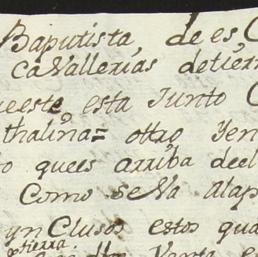 Baputista, de es C
caVallerias detierr
ueeste, esta Junto C
thalina= ottro Yen
o quees arriba deel
Como se Va Alap
ynClusos estos qua
detierra